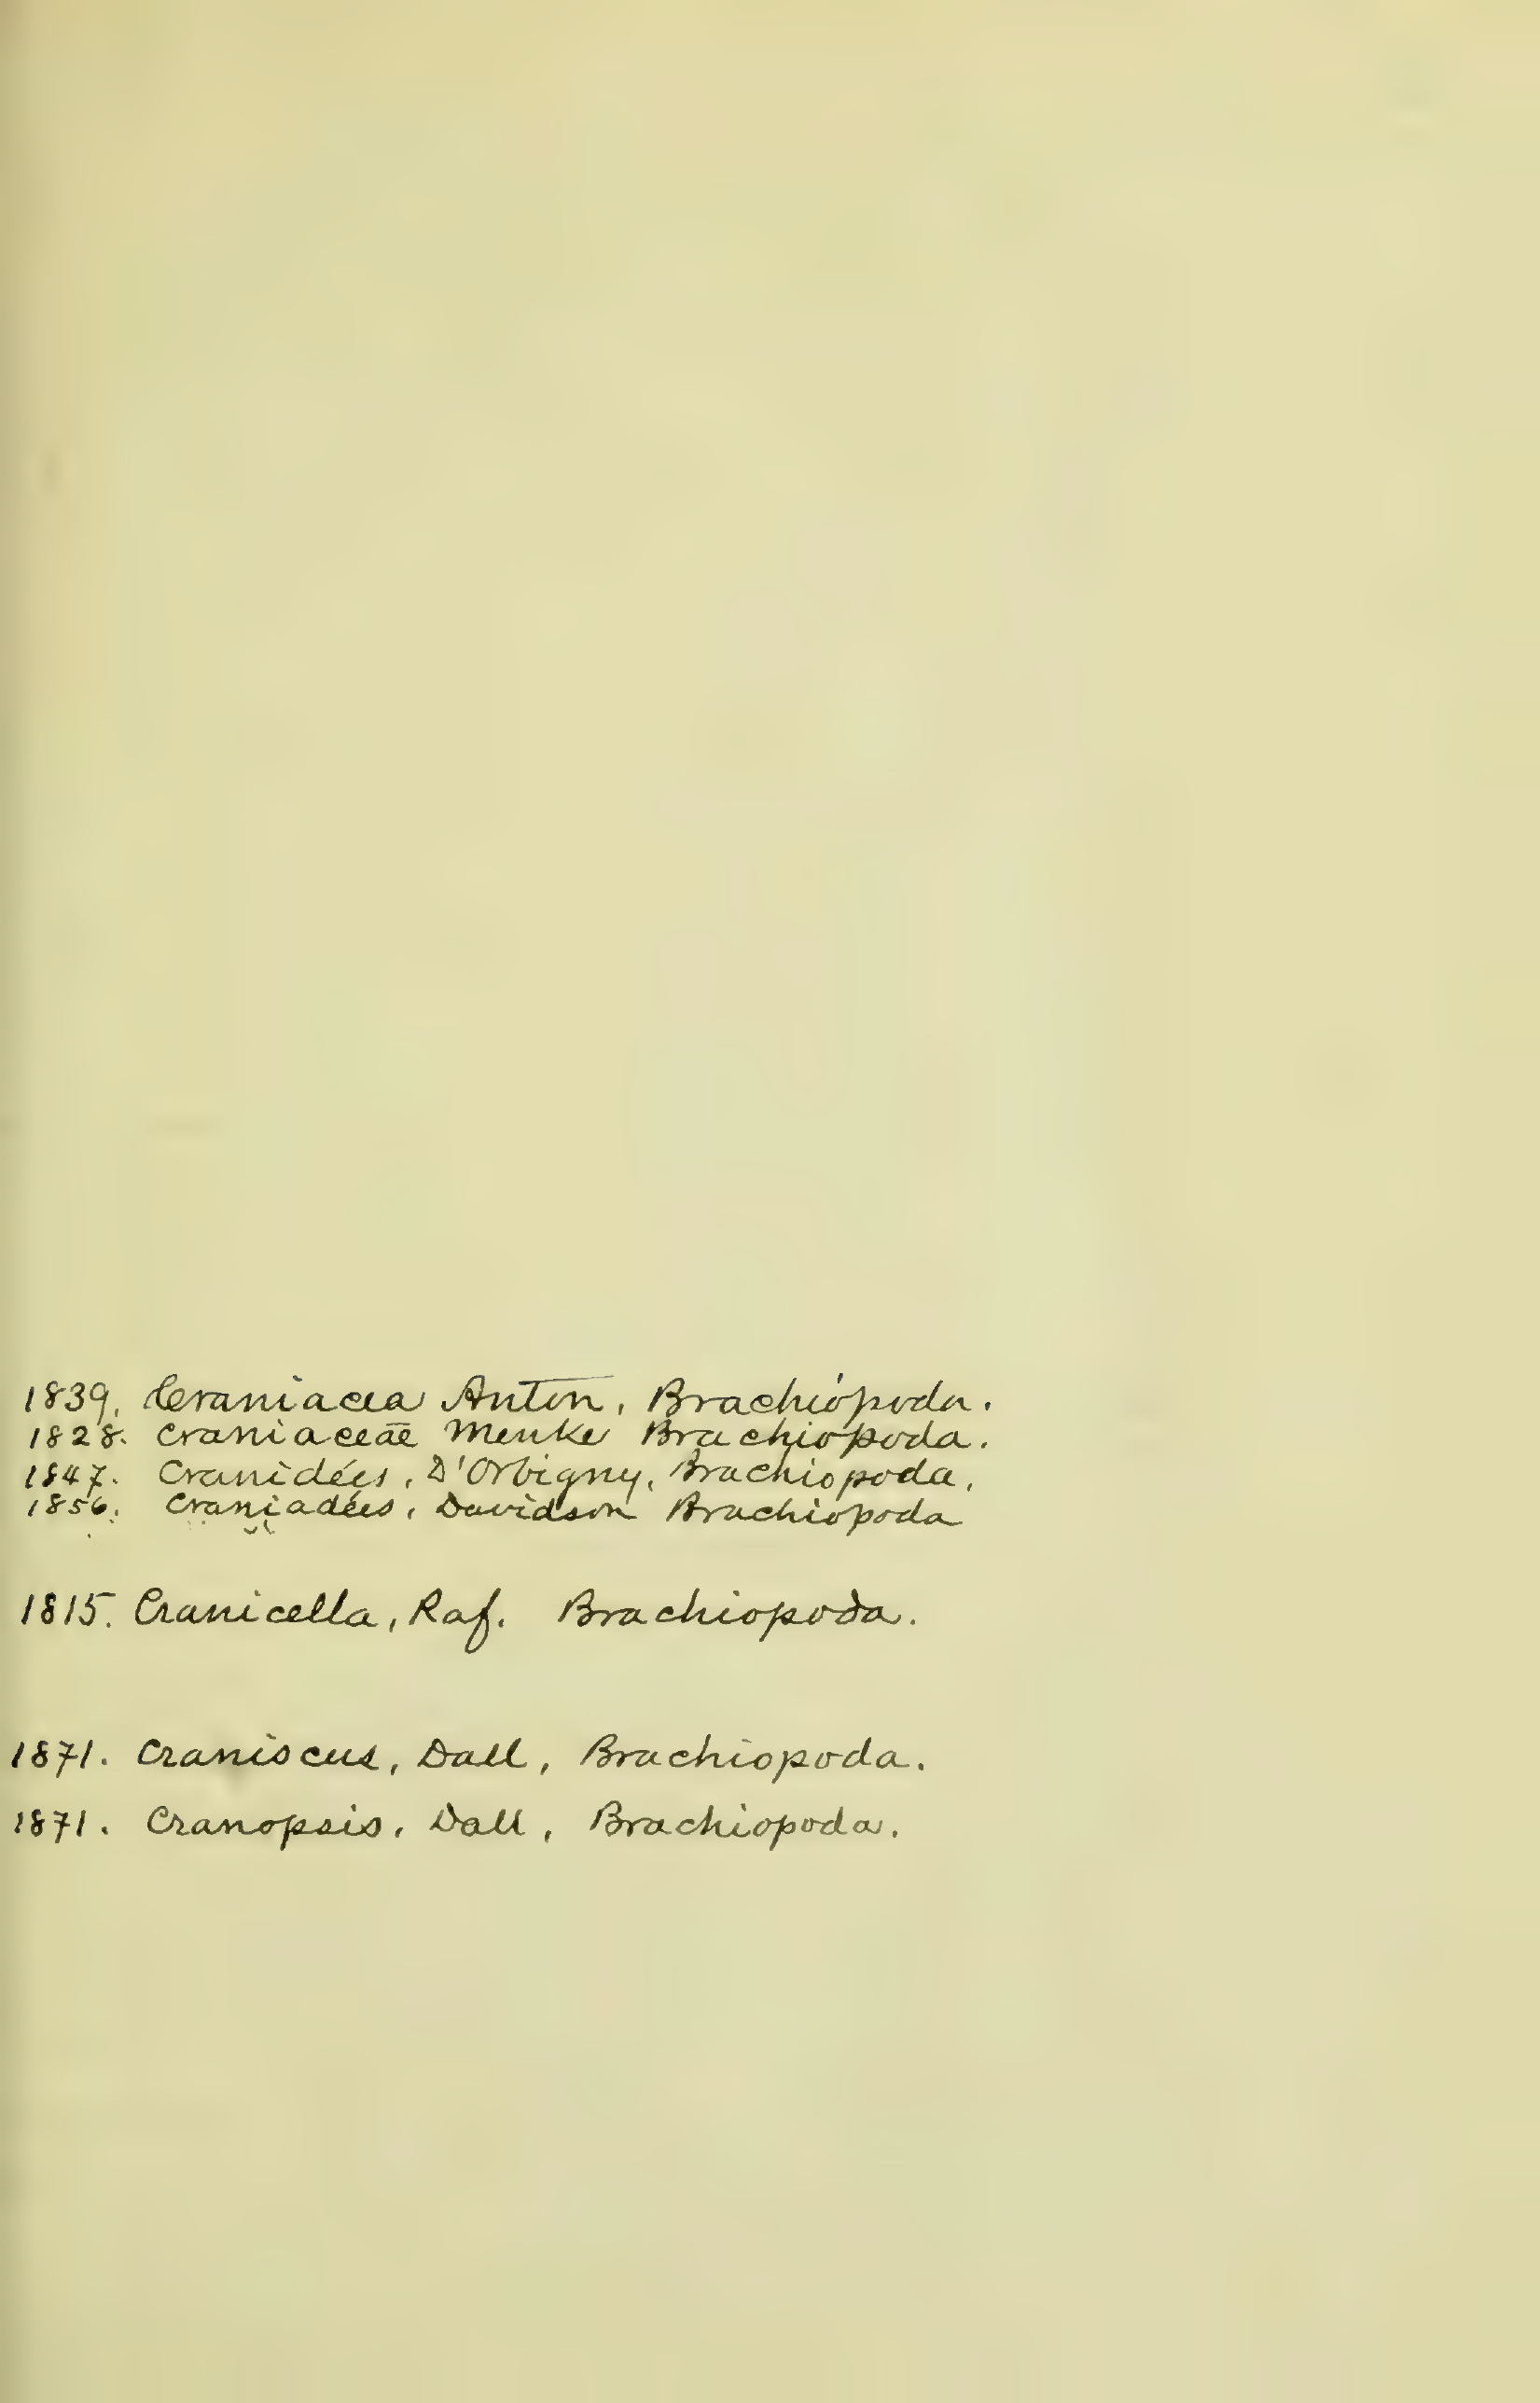 1839. Craniacea Anton, Brachiopoda.
1828. Craniaceae Menke Brachiopoda.
1847. Cranidées, D'Orbigny, Brachiopoda.
1856. Craniadées, Davidson Brachiopoda
1815. Cranicella, Raf. Brachiopoda.
1871. Craniscus, Dall, Brachiopoda.
1871. Cranopsis, Dall, Brachiopoda.